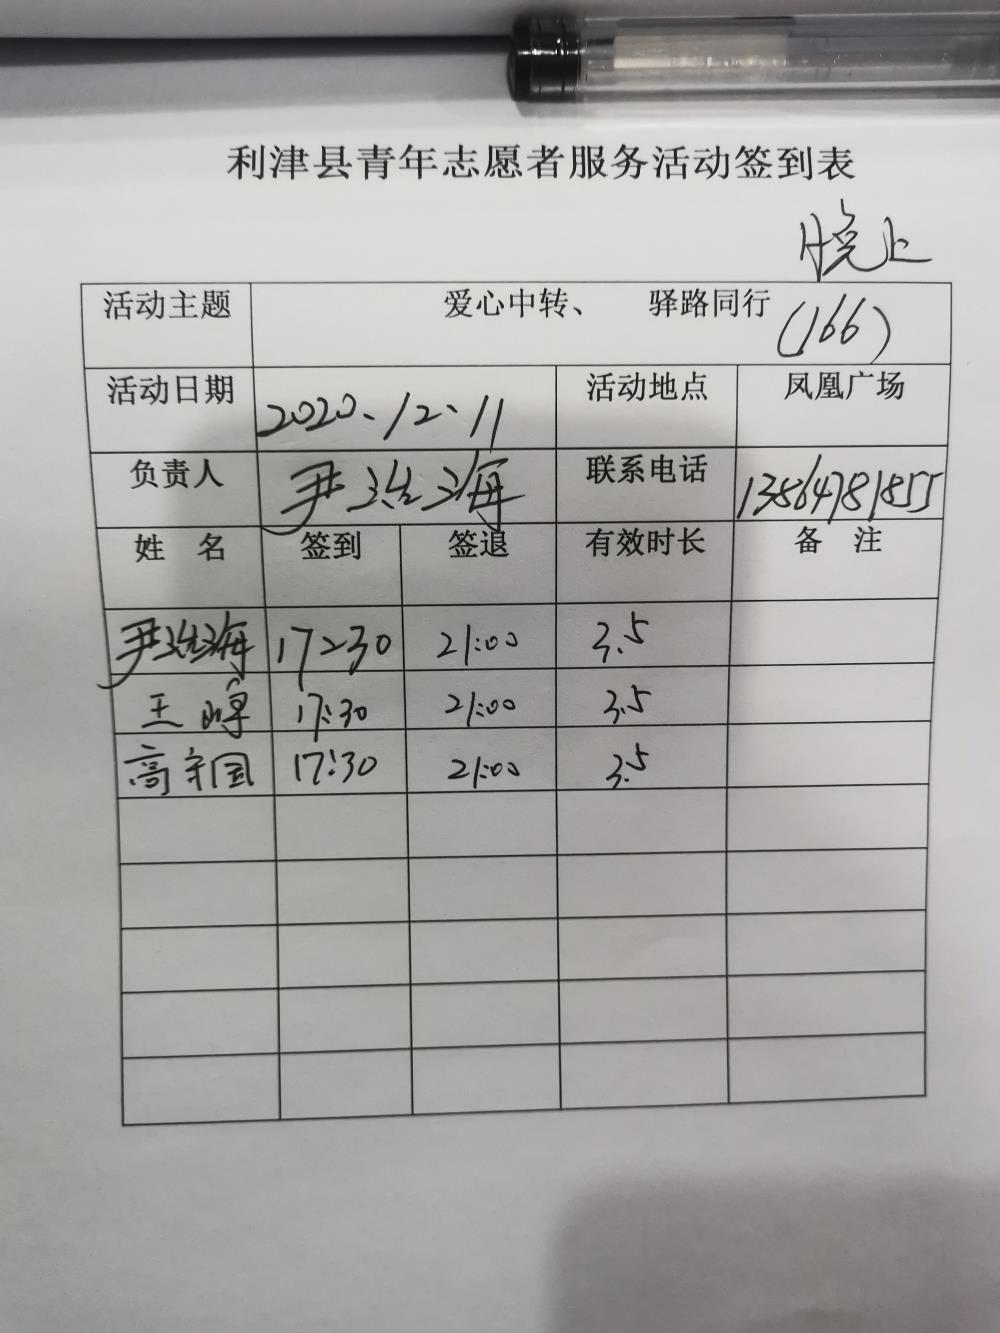 利津县青年志愿者服务活动签到表
晚上
活动主题 爱心中转、 驿路同行 (166)
活动日期 2020.12.11 活动地点 凤凰广场
负责人 尹治海 联系电话 13864781855
姓 名 签到 签退 有效时长 备 注
尹治海 17:30 21:00 3.5
王峰 17:30 21:00 3.5
高守国 17:30 21:00 3.5